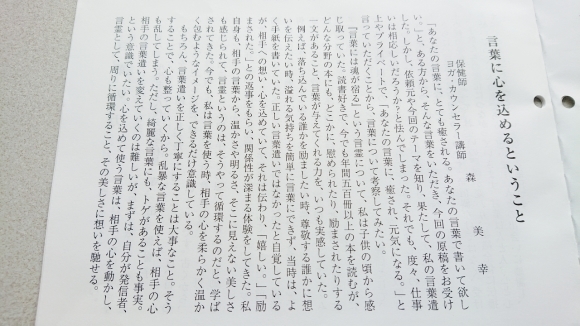 言葉に心を込めるということ
保健師
ヨガ・カウンセラー講師　森　美幸
「あなたの言葉に、とても癒される。あなたの言葉で書いて欲し
い。」と、ある方から、そんな言葉をいただき、今回の原稿をお受け
した。しかし、依頼元や今回のテーマを知り、果たして、私の言葉遣
いは相応しいだろうか！と怯んでしまった。それでも、度々、仕事
上やプライベートで、「あなたの言葉に、癒され、元気になる。」と
言っていただくことから、言葉について考察してみたい。
『言葉には魂が宿る』という言霊について、私は子供の頃から感
じ取っていた。読書好きで、今でも年間五百冊以上の本を読むが、
どんな分野の本にも、どこかに、慰められたり、励まされたりする
一文があること、言葉が与えてくれる力を、いつも実感していた。
例えば、落ち込んでいる誰かを励ましたい時、尊敬する誰かに想
いを伝えたい時、溢れる気持ちを簡単に言葉にできず、当時は、よ
く手紙を書いていた。正しい言葉遣いではなかったと自覚している
が、相手への想い・心を込めていて、それは伝わり、「嬉しい。」「励
まされた。」との返事をもらい、関係性が深まる体験をしてきた。私
自身も、相手の言葉から、温かさや明るさ、そこに見えない美しさ
も感じられて、言霊というのは、そうやって循環するのだと、学ば
されてきた。今でも、私は言葉を使う時、相手の心を柔らかく温か
く包むようなイメージを、できるだけ意識している。
もちろん、言葉遣いを正しく丁寧にすることは大事なこと。そう
することで、心も整っていくから。乱暴な言葉を使えば、相手の心
も乱してしまう。ただし、綺麗な言葉にも、トゲがあることも事実。
相手の言葉遣いを変えていくのは難しいが、まずは、自分が発信者、
という意識でいたい。心を込めて使う言葉は、相手の心を動かし、
言霊として、周りに循環すること、その美しさに想いを馳せる。